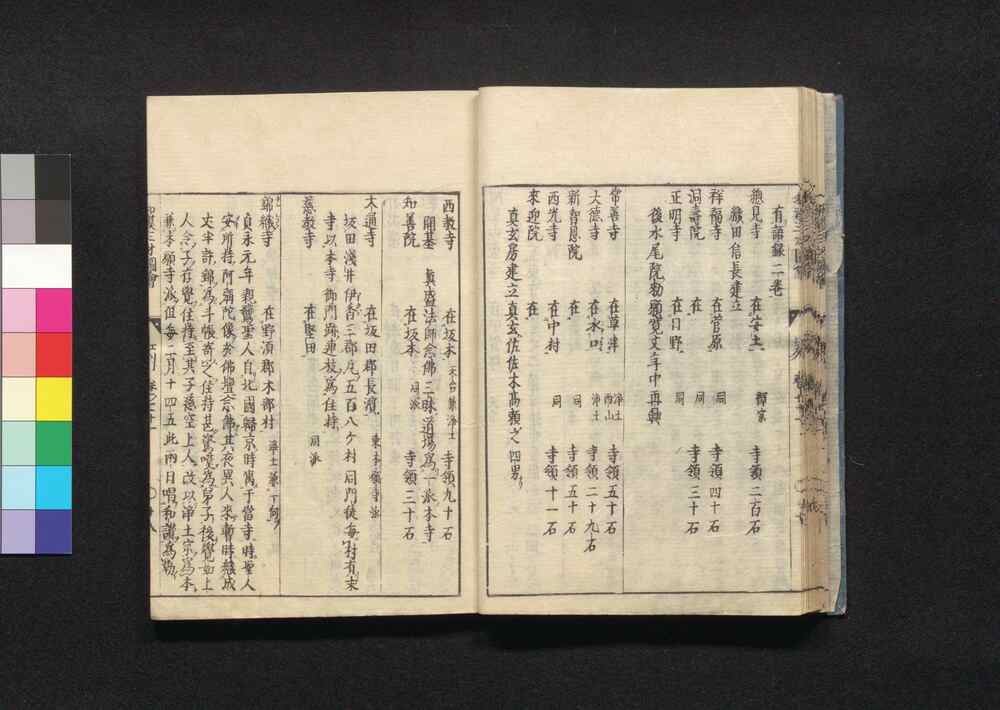 有語録二卷
摠見寺 在安土 禪宗 寺領二百石
織田信長建立
祥福寺 在菅原 同 寺領四十石
洞壽院 在 同 寺領三十石
正明寺 在日野 同
後水尾院勅願寛文年中再興
常善寺 在草津 淨土西山 寺領五十石
大徳寺 在水口 淨土 寺領二十九石
新智恩院 在 同 寺領五十石
西光寺 在中村 同 寺領十一石
來迎院 在
真玄房建立真玄佐佐木髙頼之四男
西教寺 在坂本 天台兼淨土 寺領九十石
開基 真盛法師念佛三昧道場爲一派本寺
知善院 在坂本 同派 寺領三十石
大通寺 在坂田郡長濱 東本願寺派
坂田淺井伊香三郡凡五百八ケ村同門徒每村有末
寺以本寺御門跡連枝爲住持
慈教寺 在堅田 同派
錦織寺 在野須郡木部村 淨土兼一向
貞永元年親鸞聖人自北國歸京時寓于當寺時聖人
安所持阿弥陀像於佛壇念佛其夜異人來暫時織成
丈半許錦爲斗帳寄之住持
人念子存覺住持至其子慈空上人改以淨土宗爲本
兼本願寺派但每月十四五此兩日唱和讃爲勤